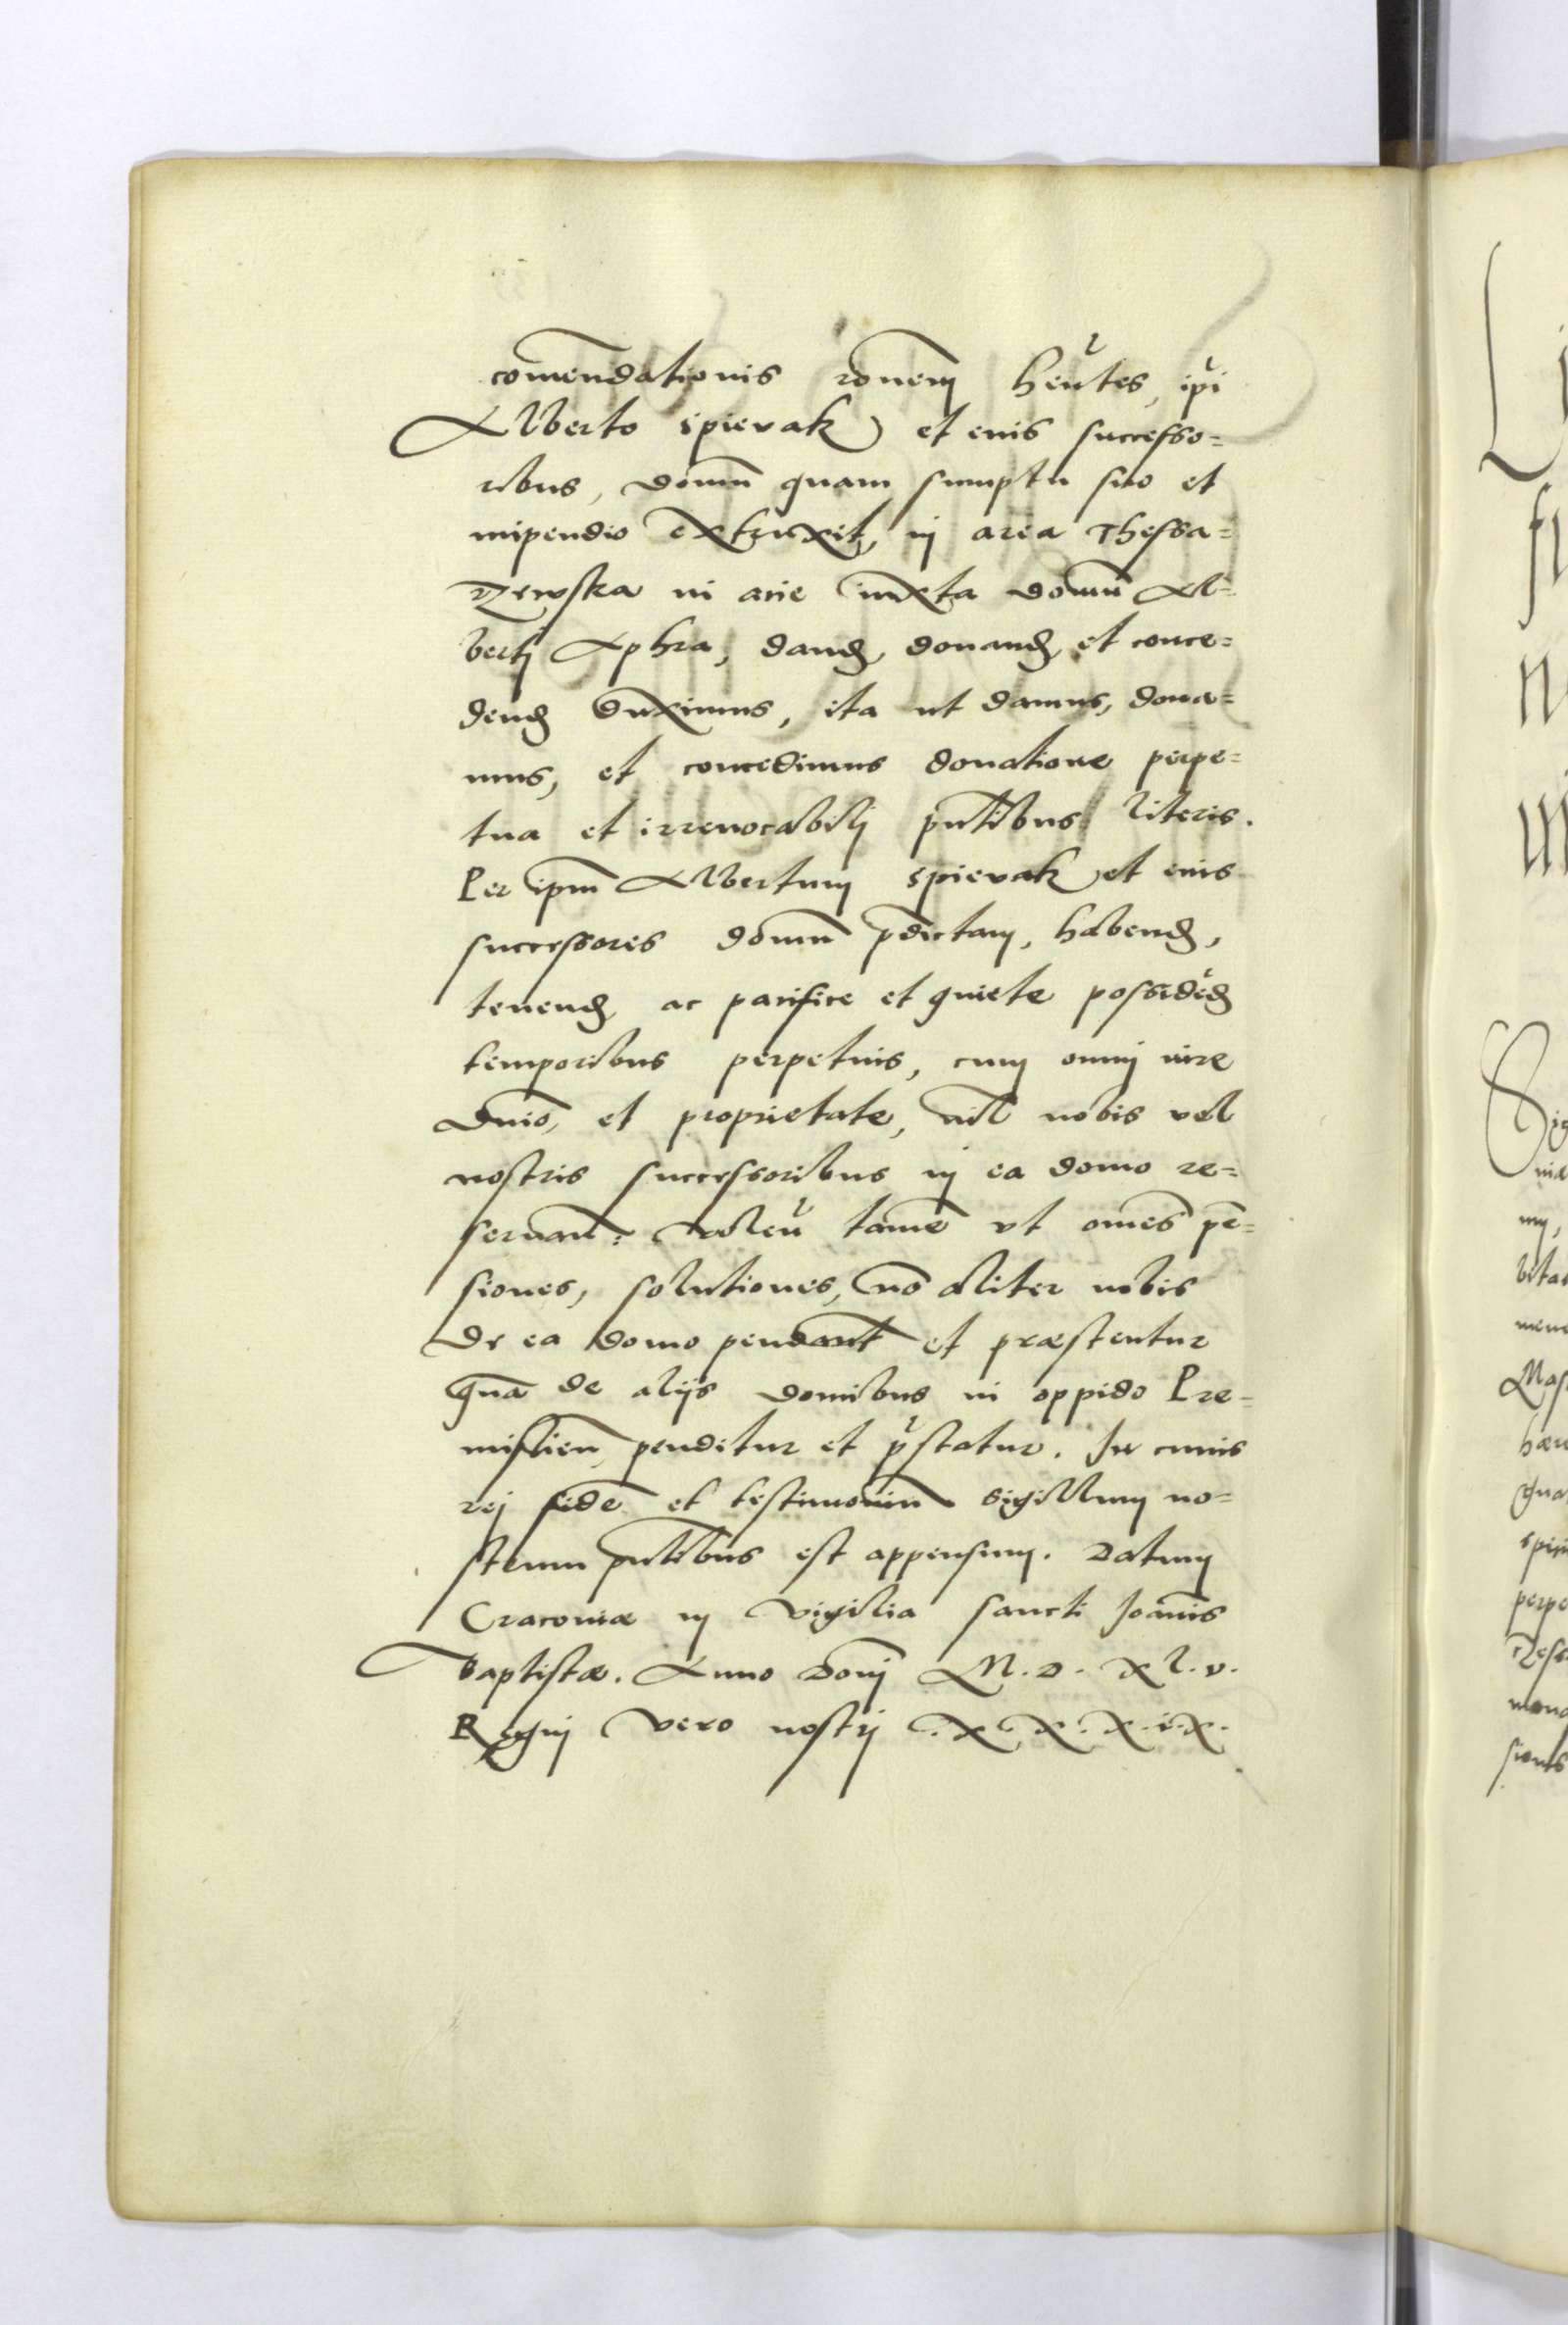 com̄endationis rōnem hn̄tes, ipi
Alberto spievak et eius successo=
ribus, domū quam sumptu suo et
impendio extruxit, in area Thessa=
rzewska in arce iuxta domū Al=
berti Aphra, dand, donand, et conce=
dend duximus, ita ut damus, dona=
mus, et concedimus donatione perpe=
tua et irrevocabili pn̄tibus literis.
Per ipm̄ Albertum spievak et eius
successores domū p̄dictam, habend,
tenend, ac pacifice et quiete possidēd
temporibus perpetuis, cum omni iure
Dn̄io, et proprietate, nil nobis vel
nostris successoribus in ea domo re=
servan: volen tamē vt om̄es pē=
siones, solutiones, nō aliter nobis
de ea domo pendant et præstentur
quā de alijs domibus in oppido Pre=
mislien penditur et p̄statur. In cuius
rei fidē et testimoniū sigillum no=
strum pn̄tibus est appensum. Datum
Cracoviæ in vigilia sancti Joannis
Baptistæ. Anno Domi M.D.XL.v.
Regni vero nostri .X.X.X.i.X.